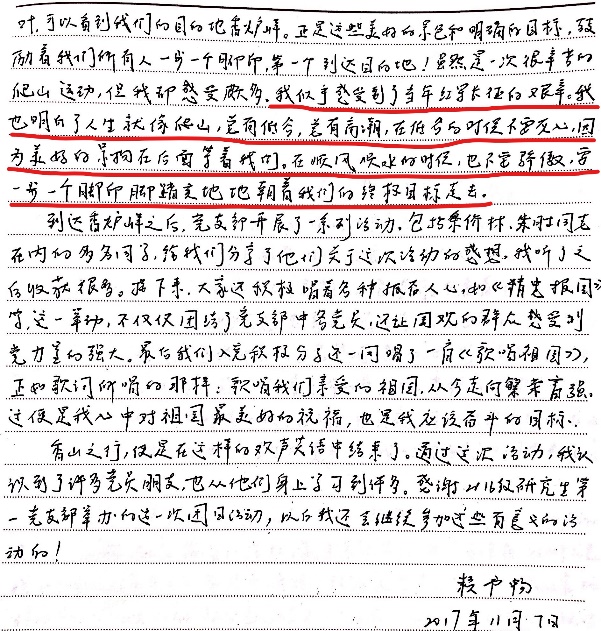 时,可以看到我们的目的地香炉峰。正是这些美好的景色和明确的目标,鼓
励着我们所有人一步一个脚印,争一个到达目的地!虽然是一次很辛苦的
爬山运动,但我却感受颇多。我似乎感受到了当年红军长征的艰辛。我
也明白了人生就像爬山,总有低谷,总有高潮,在低谷的时候不要灰心,因
为美好的景物在后面等着我们。在顺风顺水的时候,也不要骄傲,要
一步一个脚印脚踏实地地朝着我们的终极目标走去。
到达香炉峰之后,党支部开展了一系列活动。包括 朱时同志
在内的多名同学,给我们分享了他们关于这次活动的感想。我听了之
后收获很多。接下来,大家还积极唱着各种振奋人心,如《精忠报国》
等,这一举动,不仅仅团结了党支部中各党员,还让围观的群众感受到
党力量的强大。最后我们入党积极分子还一同唱了一首《歌唱祖国》,
正如歌词所唱的那样:歌唱我们亲爱的祖国,从今走向繁荣富强。
这便是我心中对祖国最美好的祝福,也是我应该奋斗的目标。
香山之行,便是在这样的欢声笑语中结束了。通过这次活动,我认
识到了许多党员朋友,也从他们身上学习到许多。感谢 级研究生第
一党支部举办的这一次团日活动,以后我还会继续参加这些有意义的活
动的!
2017年11月7日